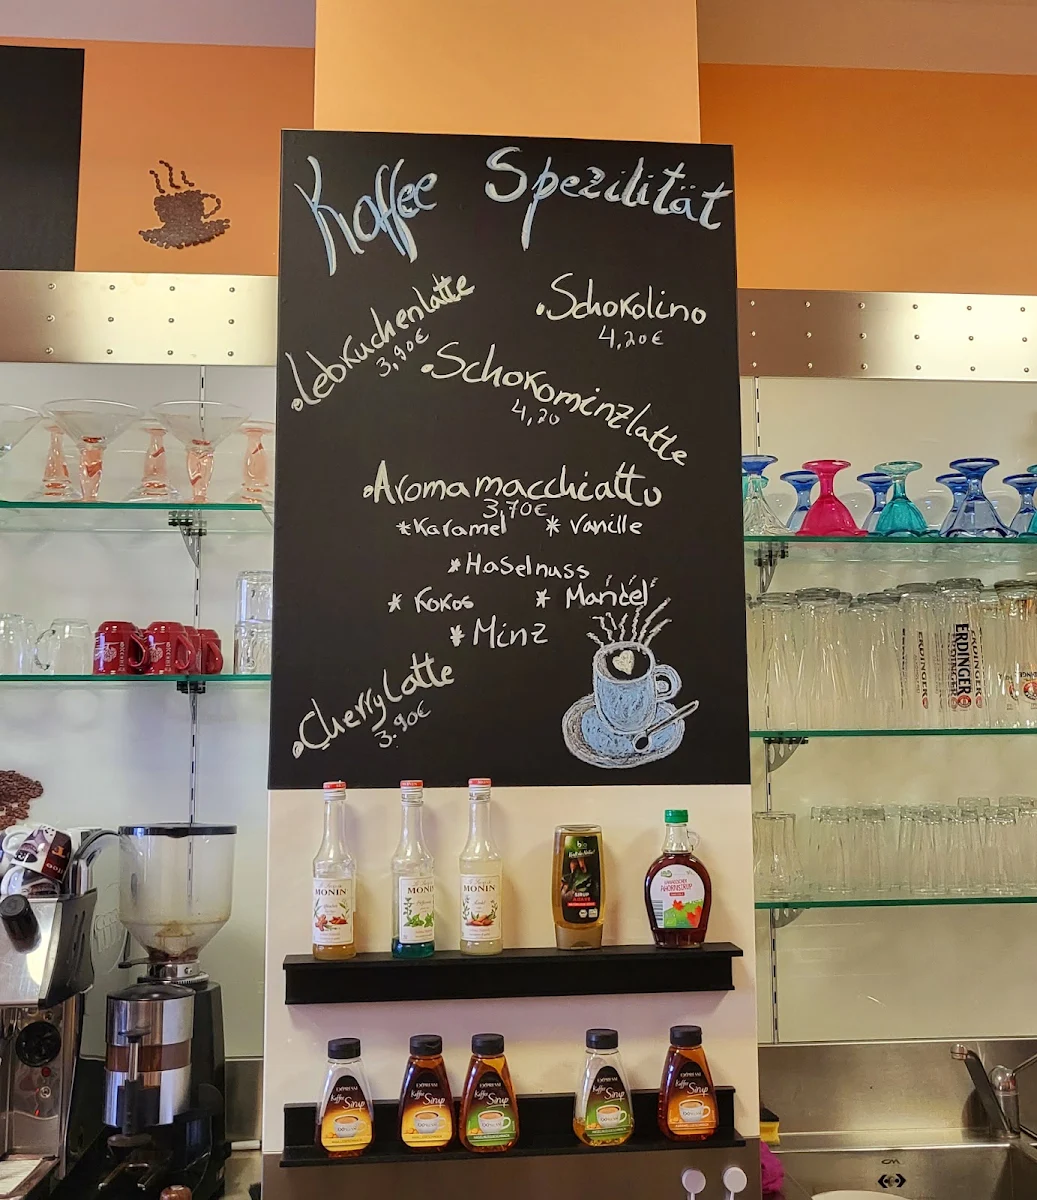 Kaffee Spezilität
Lebkuchenlatte
3,90€
Schokolino
4,20€
Schokominzlatte
4,20
Aromamacchiatto
3,70€
*Karamel * Vanille
*Haselnuss
* Kokos * Mandel
* Minz
CherryLatte
3.90€
MONIN
MONIN
MONIN
bio
SIRUP
AHORNSIRUP
ERDINGER
ERDINGER
ERDINGER
Kaffee
Sirup
Kaffee
Sirup
Kaffee
Sirup
Kaffee
Sirup
Kaffee
Sirup